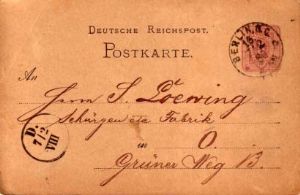 DEUTSCHE REICHSPOST.
POSTKARTE.
BERLIN, N.
An
Herrn S. Loewing
Schürzen etc Fabrik
in
O.
Grüner Weg 13.
D.
7 1/2
VIII